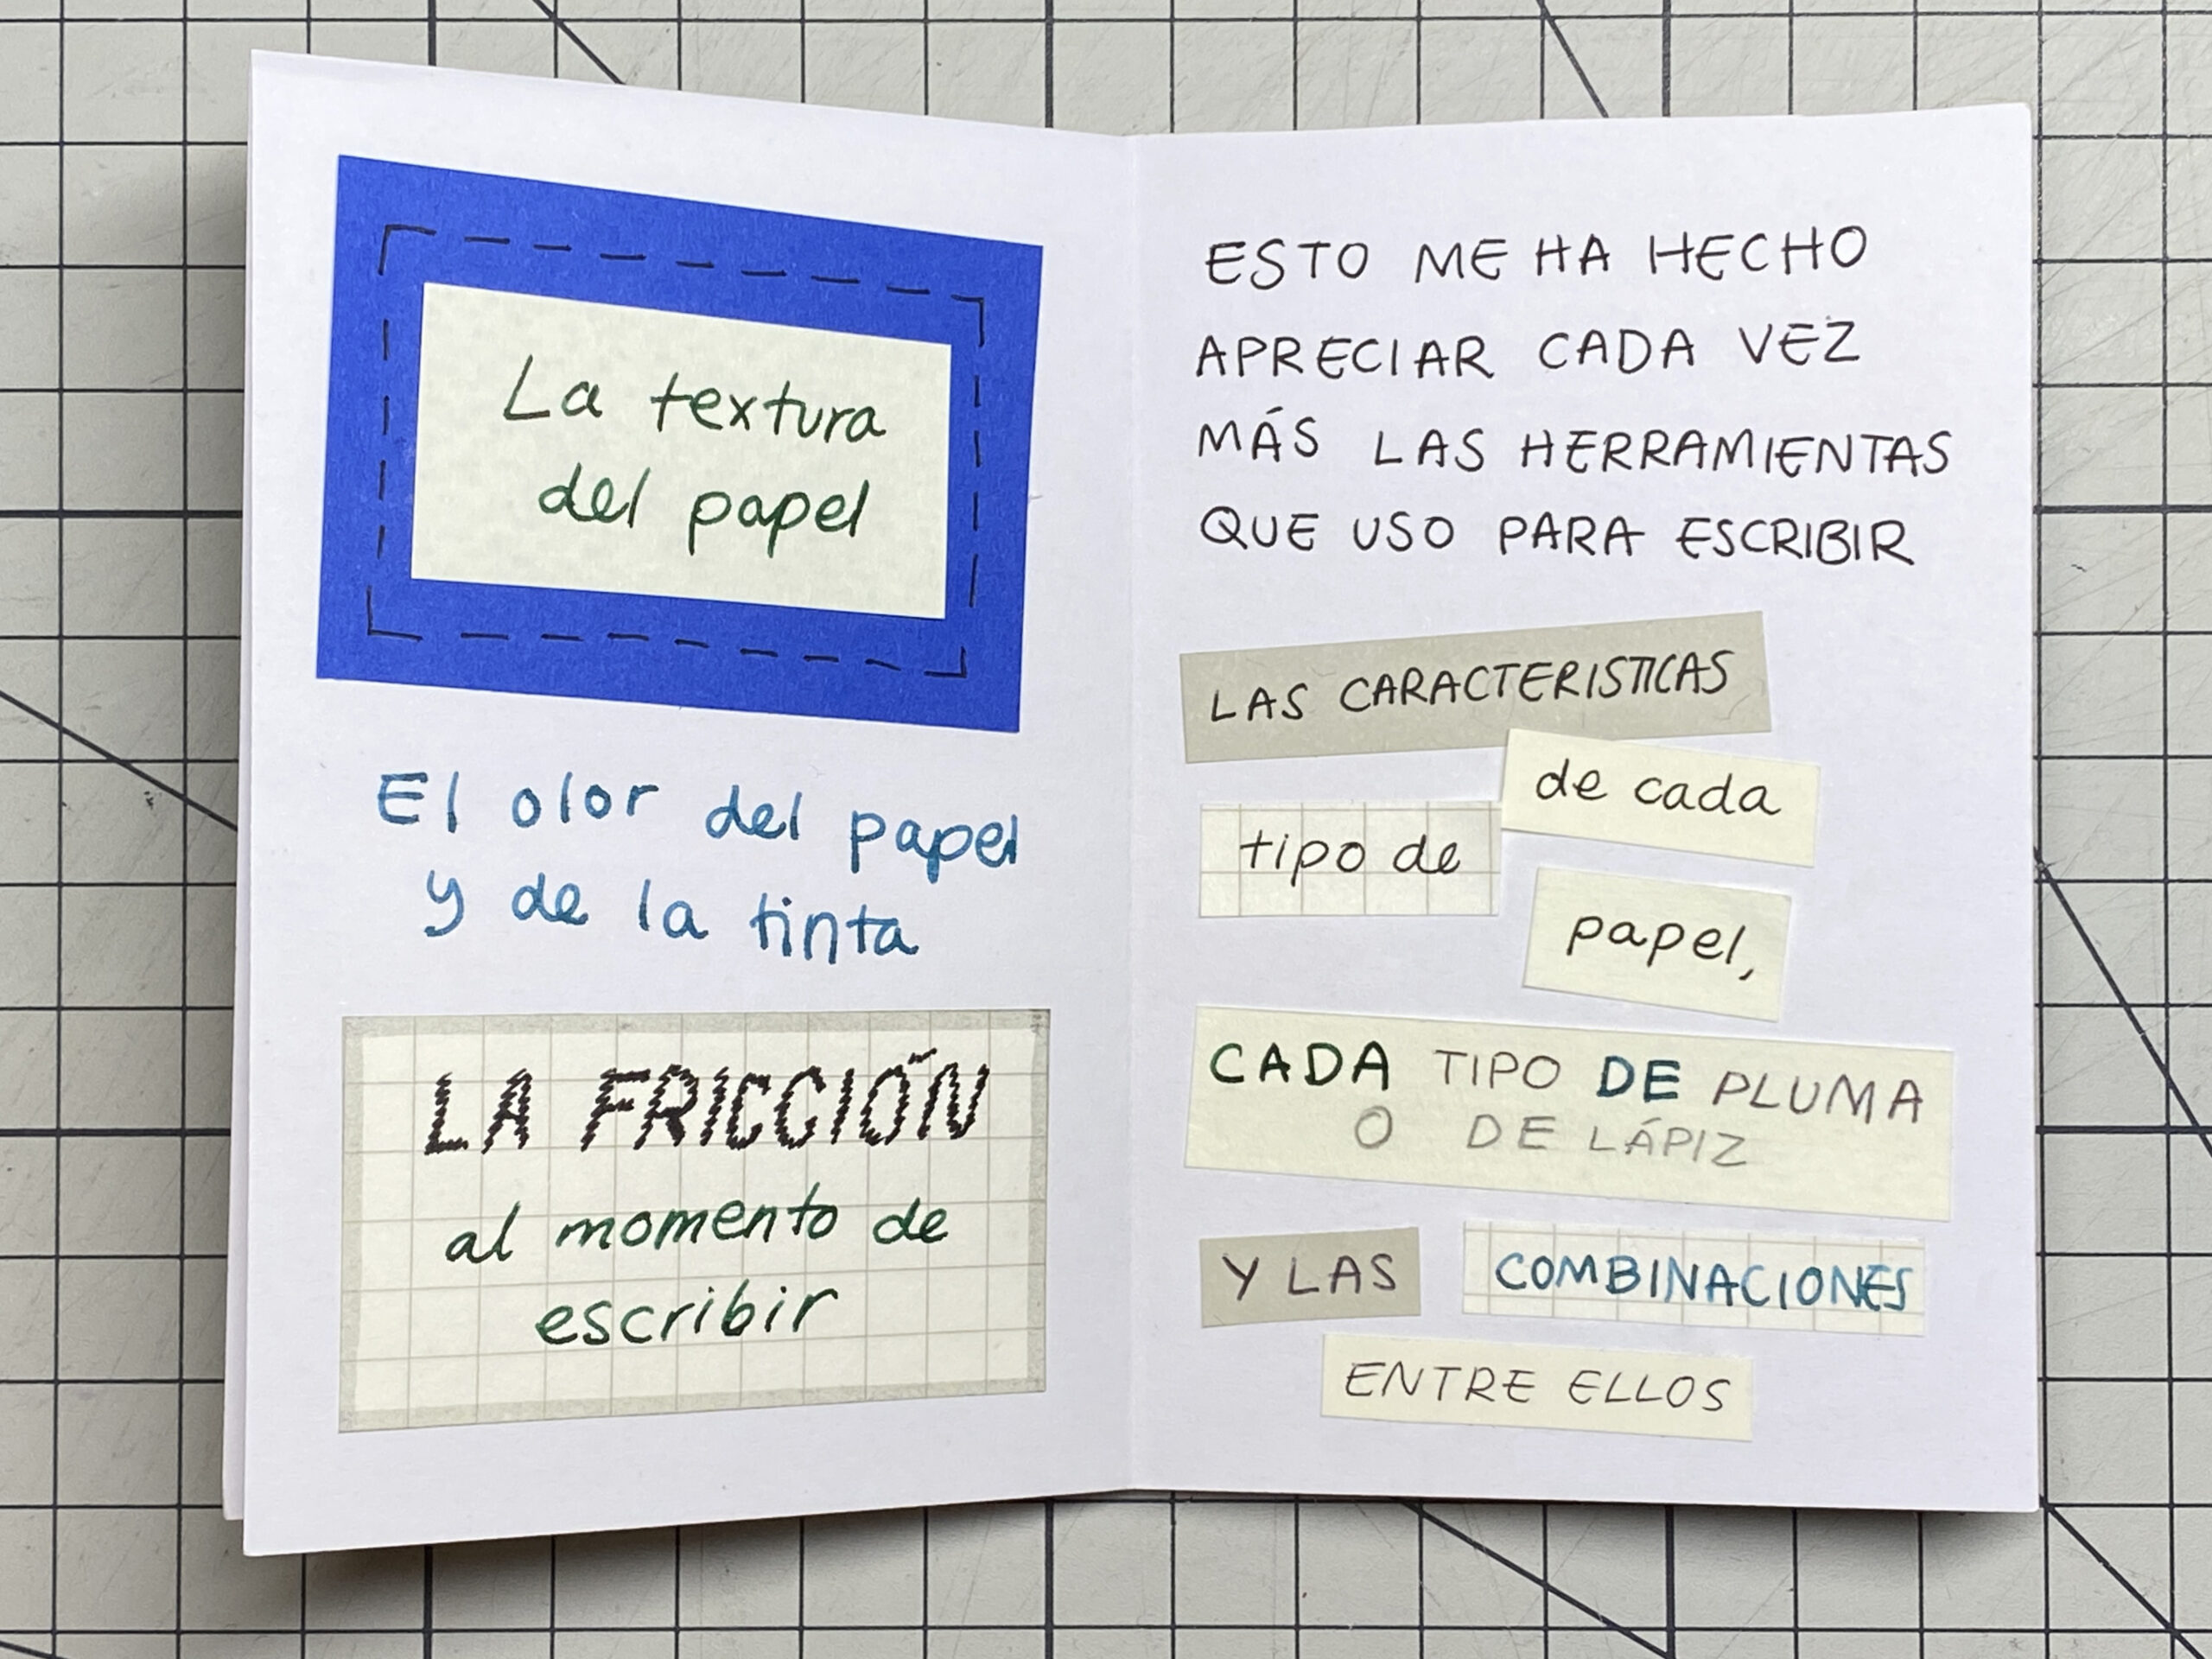 La textura
del papel
El olor del papel
y de la tinta
LA FRICCIÓN
al momento de
escribir
ESTO ME HA HECHO
APRECIAR CADA VEZ
MÁS LAS HERRAMIENTAS
QUE USO PARA ESCRIBIR
LAS CARACTERISTICAS
de cada
tipo de
papel,
CADA TIPO DE PLUMA
O DE LÁPIZ
Y LAS COMBINACIONES
ENTRE ELLOS